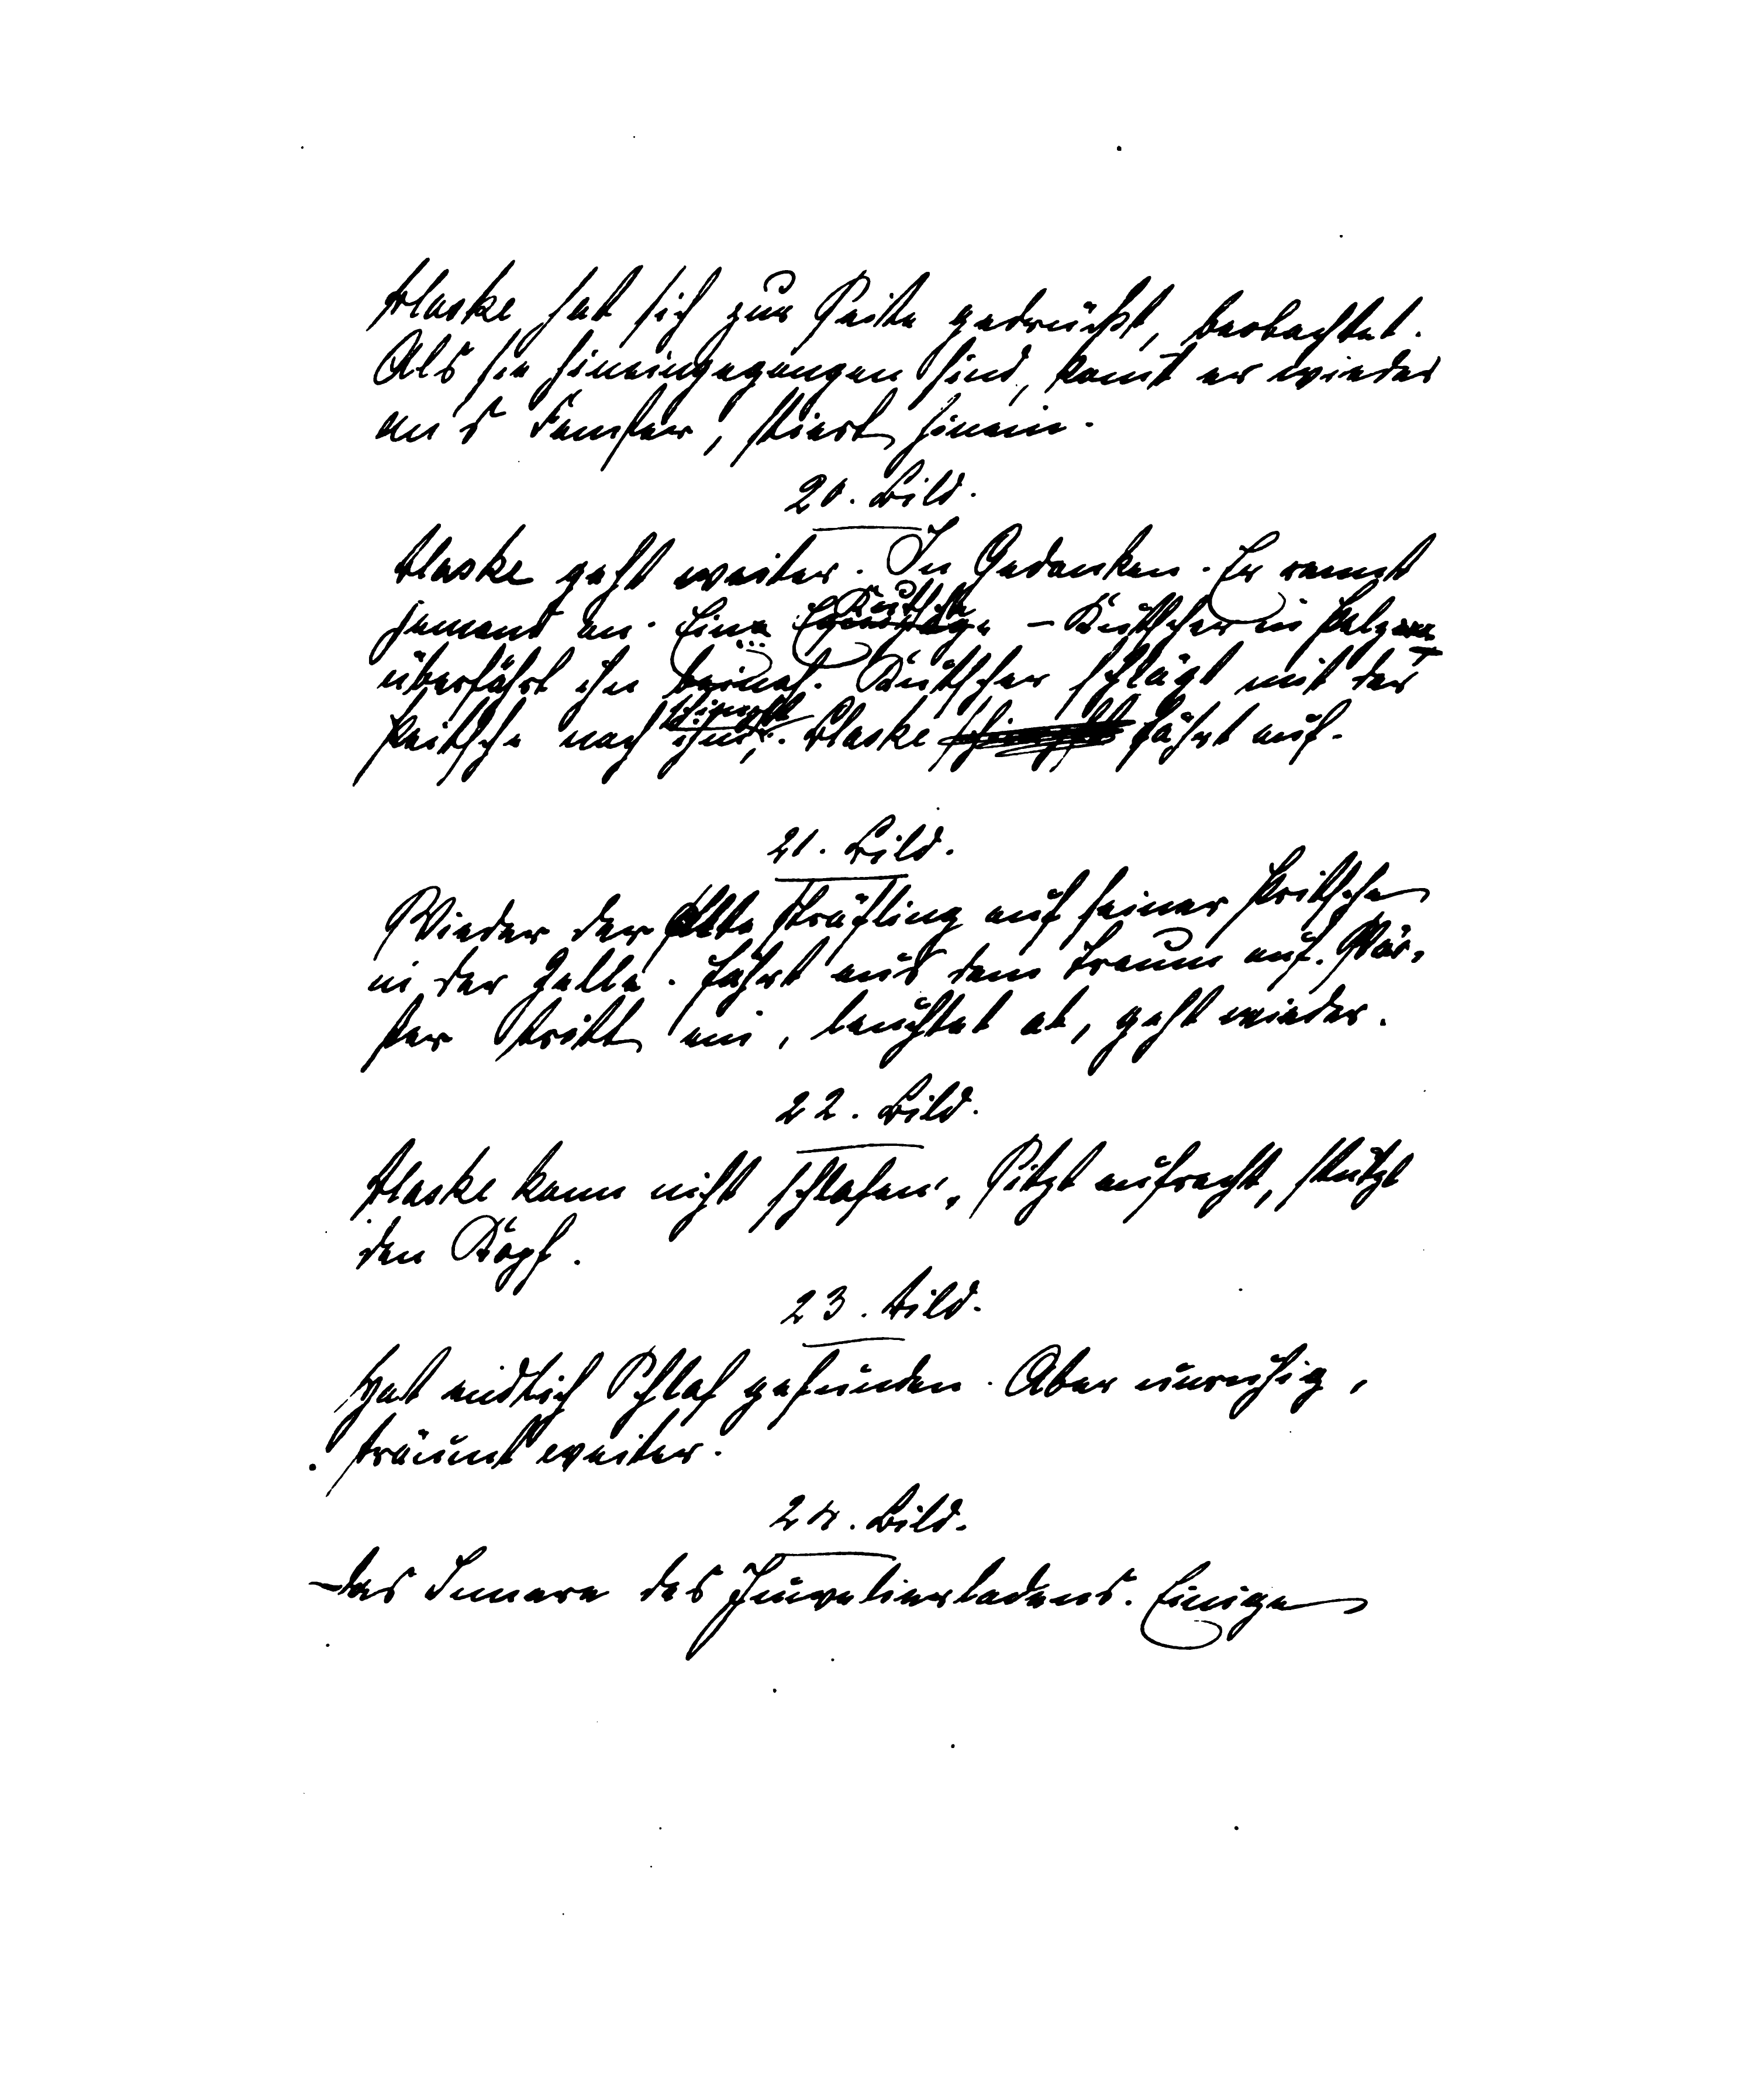 Blaske hat sich zur Seite gedrückt, beobachtet.
Als sie hineingegangen sind, komt er wieder
an's Fenster, stiert hinein.
20. Bild.
Blaske geht weiter. In Gedanken. Er rennt
jemand an. Eine Kutsche – Kutscher in Pelz
überfährt ihn beinah. Kutscher schlägt mit der
Peitsche nach ihm, schimpft. Blaske fährt auf.
21. Bild.
Wieder der alte Sträfling auf seiner Pritsche
in der Zelle. Fährt aus dem Traum auf. Wär-
ter tritt ein, leuchtet ab, geht wieder.
22. Bild.
Blaske kann nicht schlafen. Sitzt aufrecht, stützt
den Kopf.
23. Bild.
Hat endlich Schlaf gefunden. Aber unruhig,
träumt weiter.
24. Bild.
Das Innere des Juwelierladens. Einige